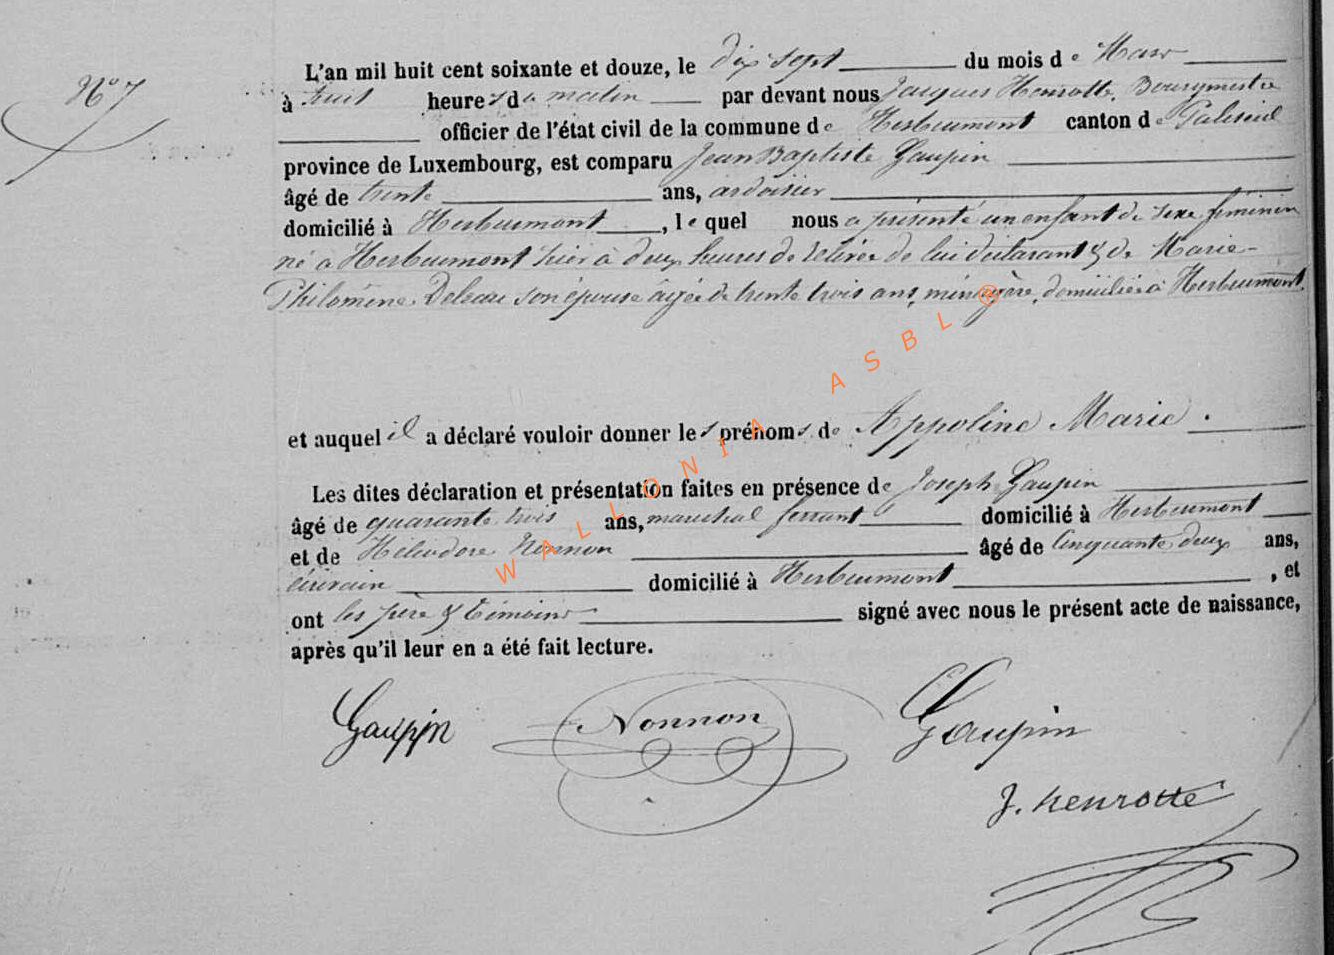 N° 7
L'an mil huit cent soixante et douze, le dix sept du mois de Mars
à huit heures du matin par devant nous Jacques Henrotte, Bourgmestre
officier de l'état civil de la commune de Herbeumont canton de Paliseul
province de Luxembourg, est comparu Jean Baptiste Gaupin
âgé de trente ans, ardoisier
domicilié à Herbeumont, lequel nous a présenté un enfant de sexe féminin
né à Herbeumont hier à deux heures de relevée de lui déclarant & de Marie
Philomène son épouse âgée de trente trois ans, ménagère, domiciliée à Herbeumont
et auquel il a déclaré vouloir donner les prénoms de Appoline Marie.
Les dites déclaration et présentation faites en présence de Joseph Gaupin
âgé de quarante trois ans, maréchal ferrant domicilié à Herbeumont
et de Héliodore Nonnon âgé de cinquante deux ans,
écrivain domicilié à Herbeumont, et
ont les père & témoins signé avec nous le présent acte de naissance,
après qu'il leur en a été fait lecture.
Gaupin Nonnon Gaupin
J. henrotte
WALLONIA ASBL ®